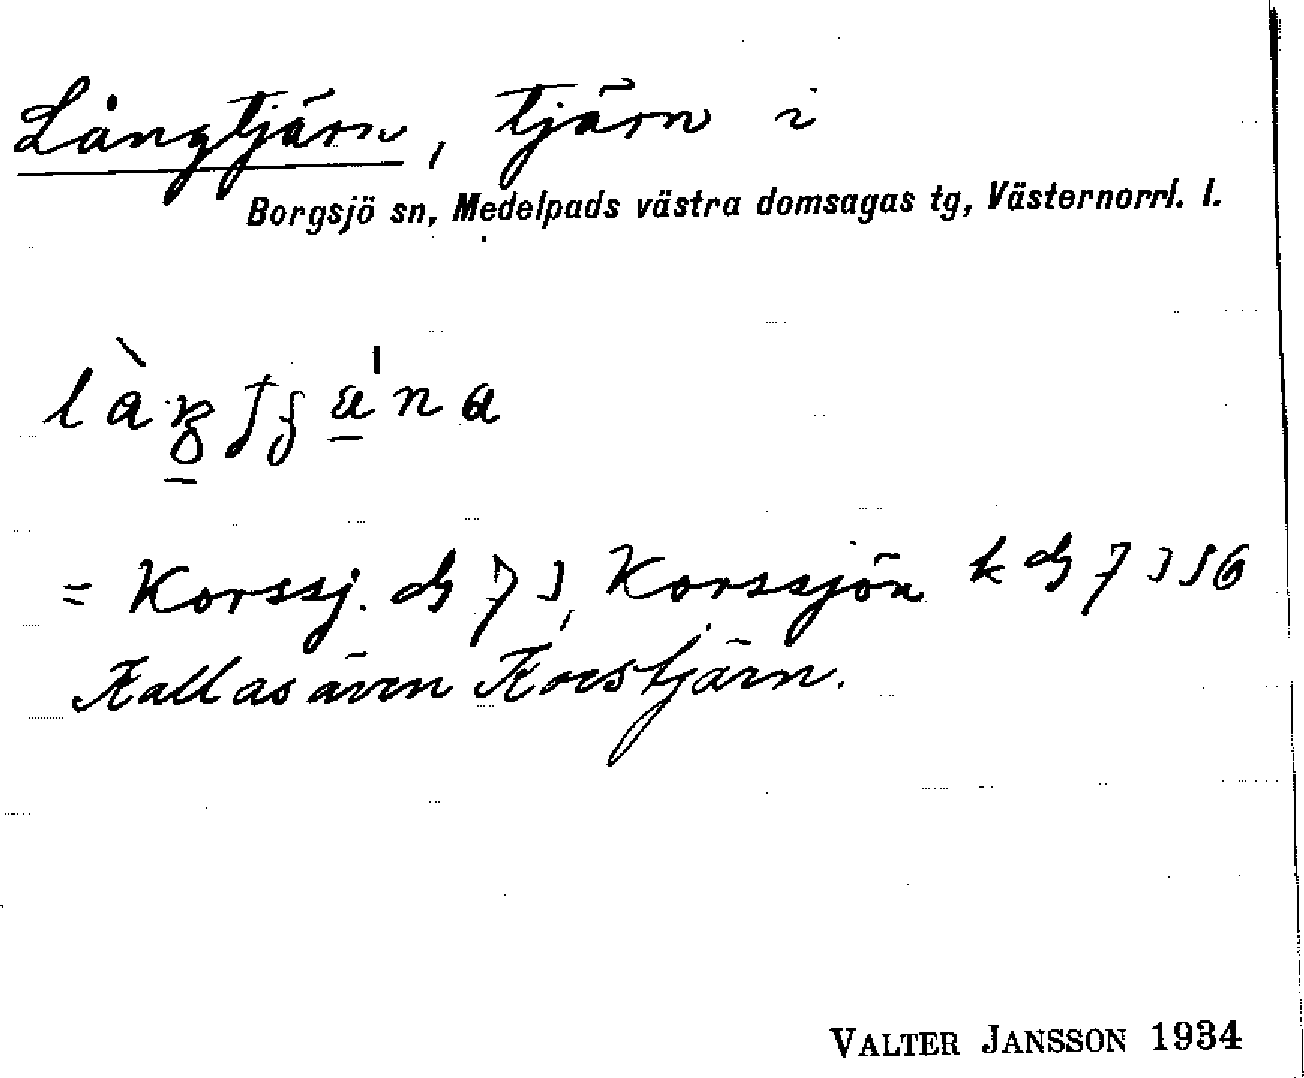 Långtjärn, tjärn i
Borgsjö sn, Medelpads västra domsagas tg, Västernorrl. l.
= Korssj. ds 73, Korssjön k ds 73 S6
Kallas även Korstjärn.
VALTER JANSSON 1934